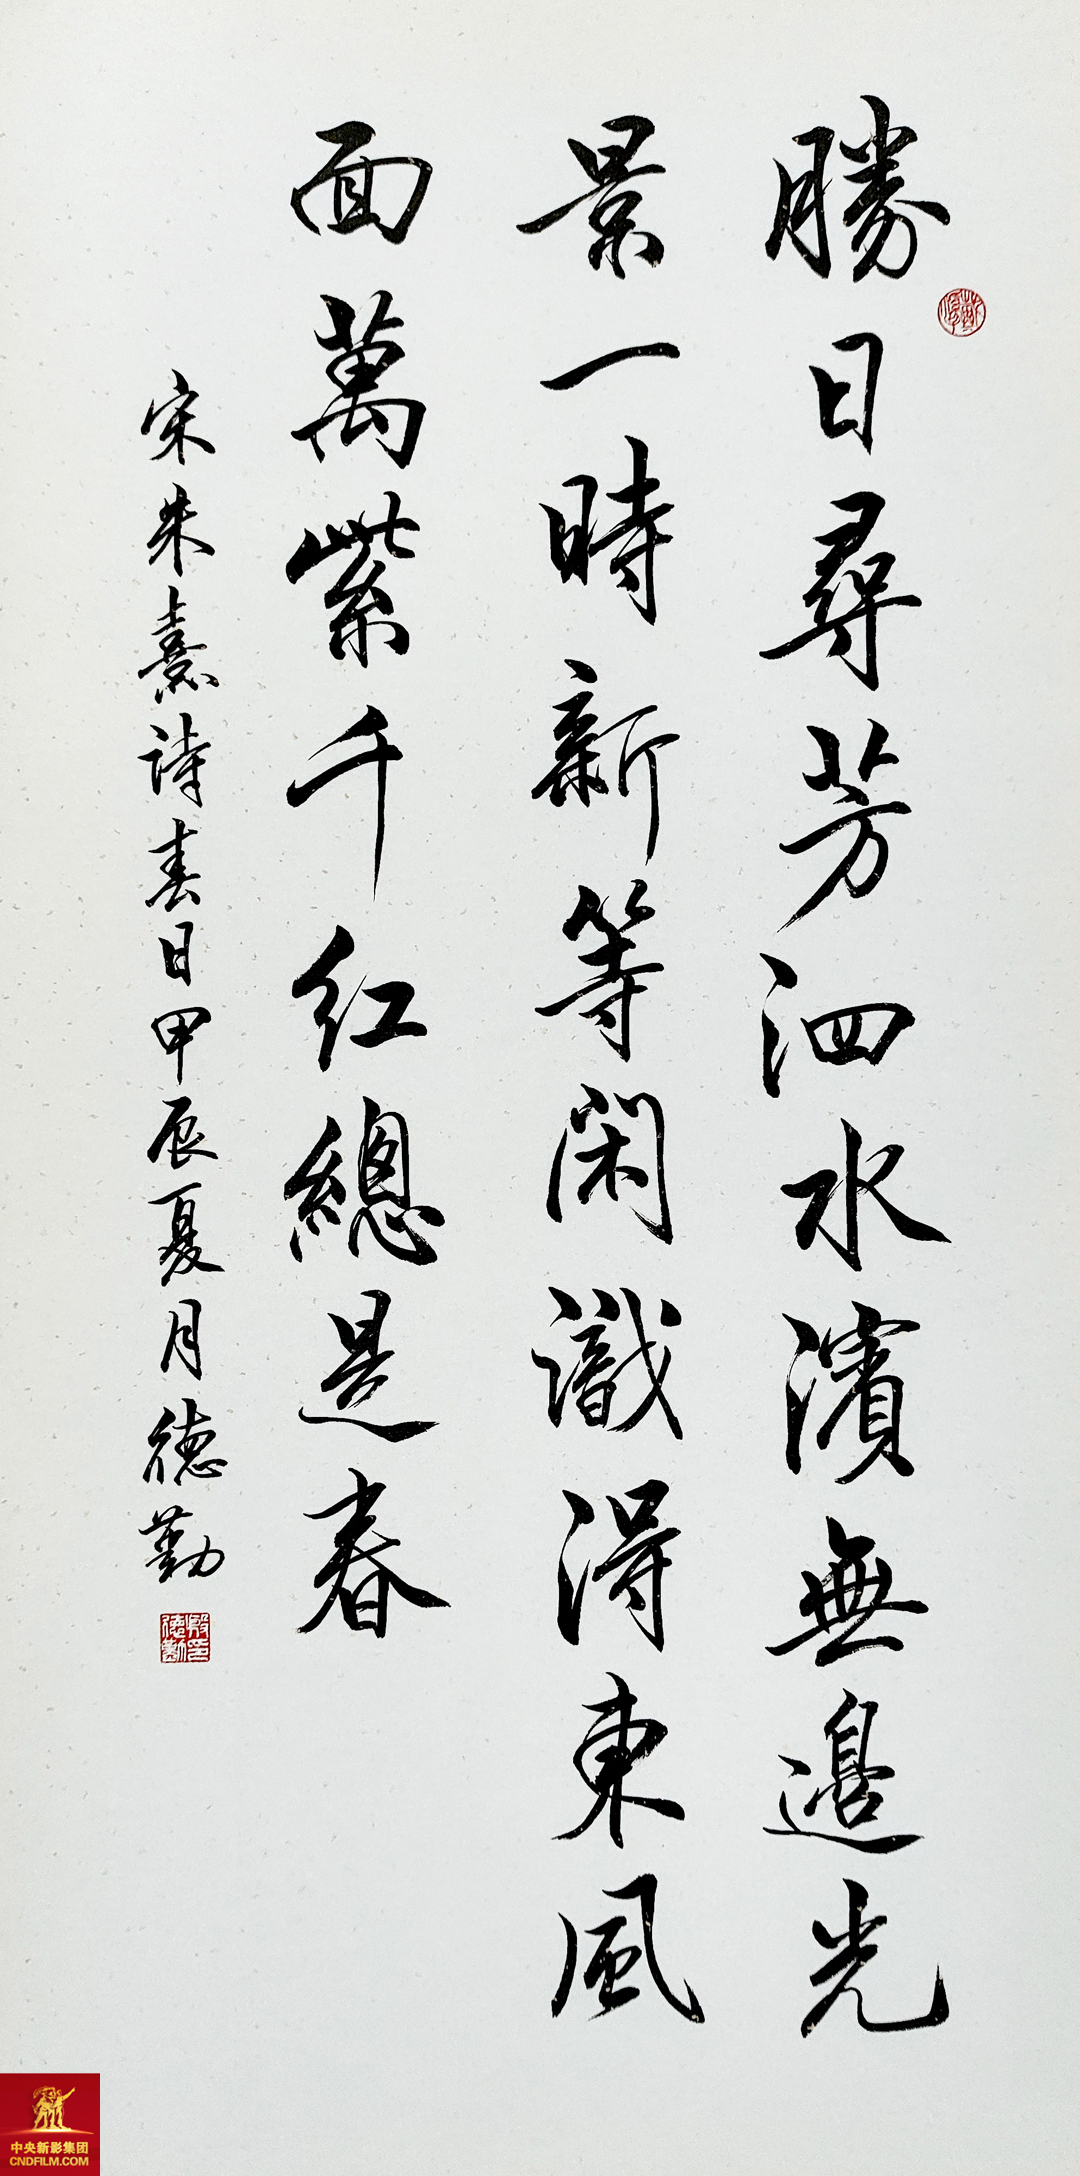 勝日尋芳泗水濱無邊光
景一時新等閑識得東風
面萬紫千红總是春
宋朱熹詩春日甲辰夏月德勤
殷德勤印
中央新影集团
CNDFILM.COM